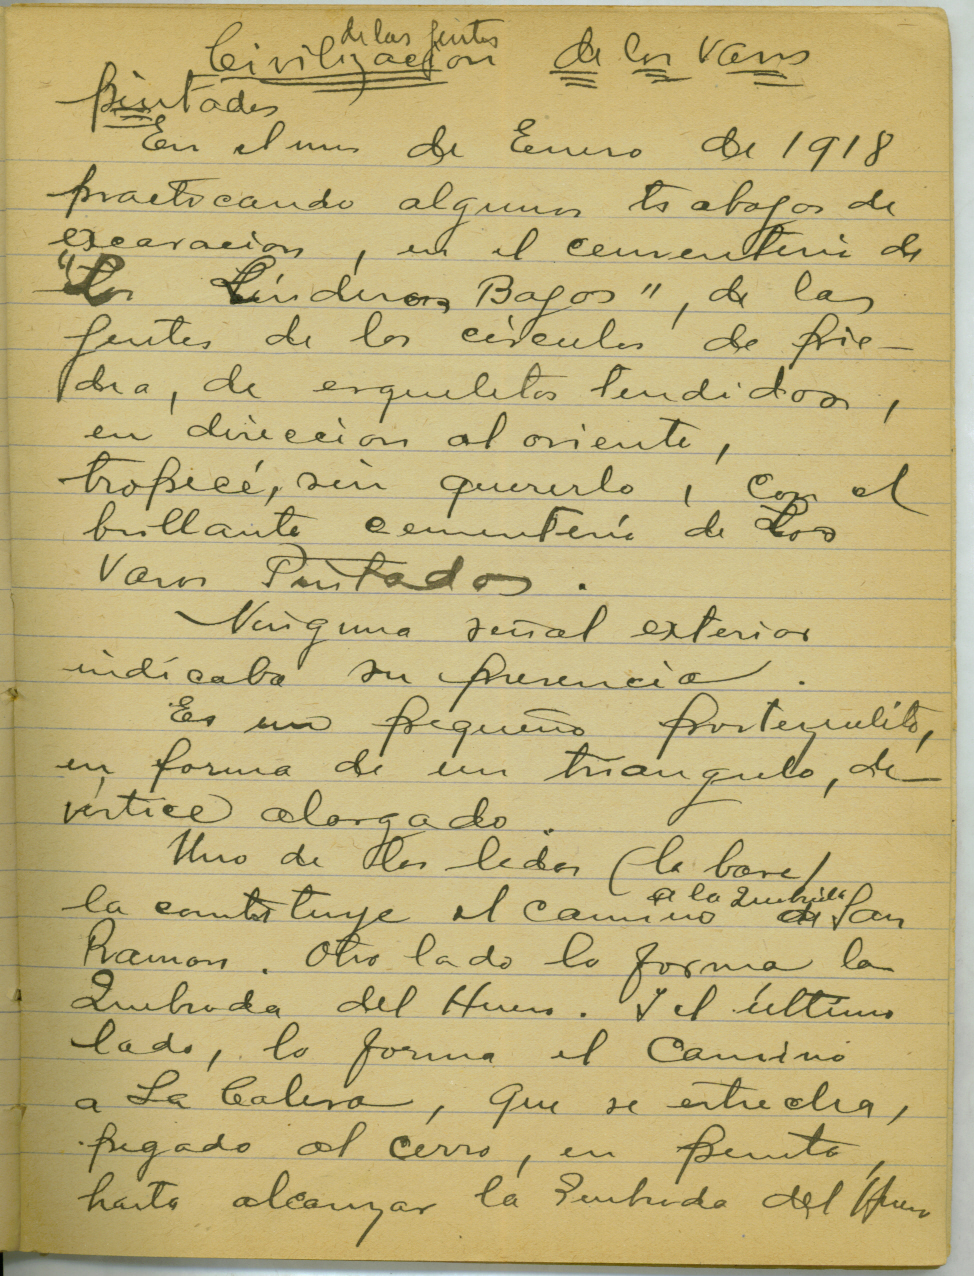 de las gentes
Civilización de los vasos
pintados
En el mes de Enero de 1918
practicando algunos trabajos de
excavacion, en el cementerio de
"Los Linderos Bajos", de las
gentes de los circulos de pie-
dra, de esqueletos tendidos,
en direccion al oriente,
tropecé, sin quererlo, con el
brillante cementerio de Los
Vasos Pintados.
Ninguna señal exterior
indicaba su presencia.
Es un pequeño portezuelito,
en forma de un triangulo, de
vértice alargado.
Uno de los lados (la base)
la constituye el camino a la Quebrada de San
Ramon. Otro lado lo forma la
Quebrada del Hueso. I el último
lado, lo forma el Camino
a La Calera, que se estrecha,
pegado al cerro, en punta,
hasta alcanzar la Quebrada del Hueso